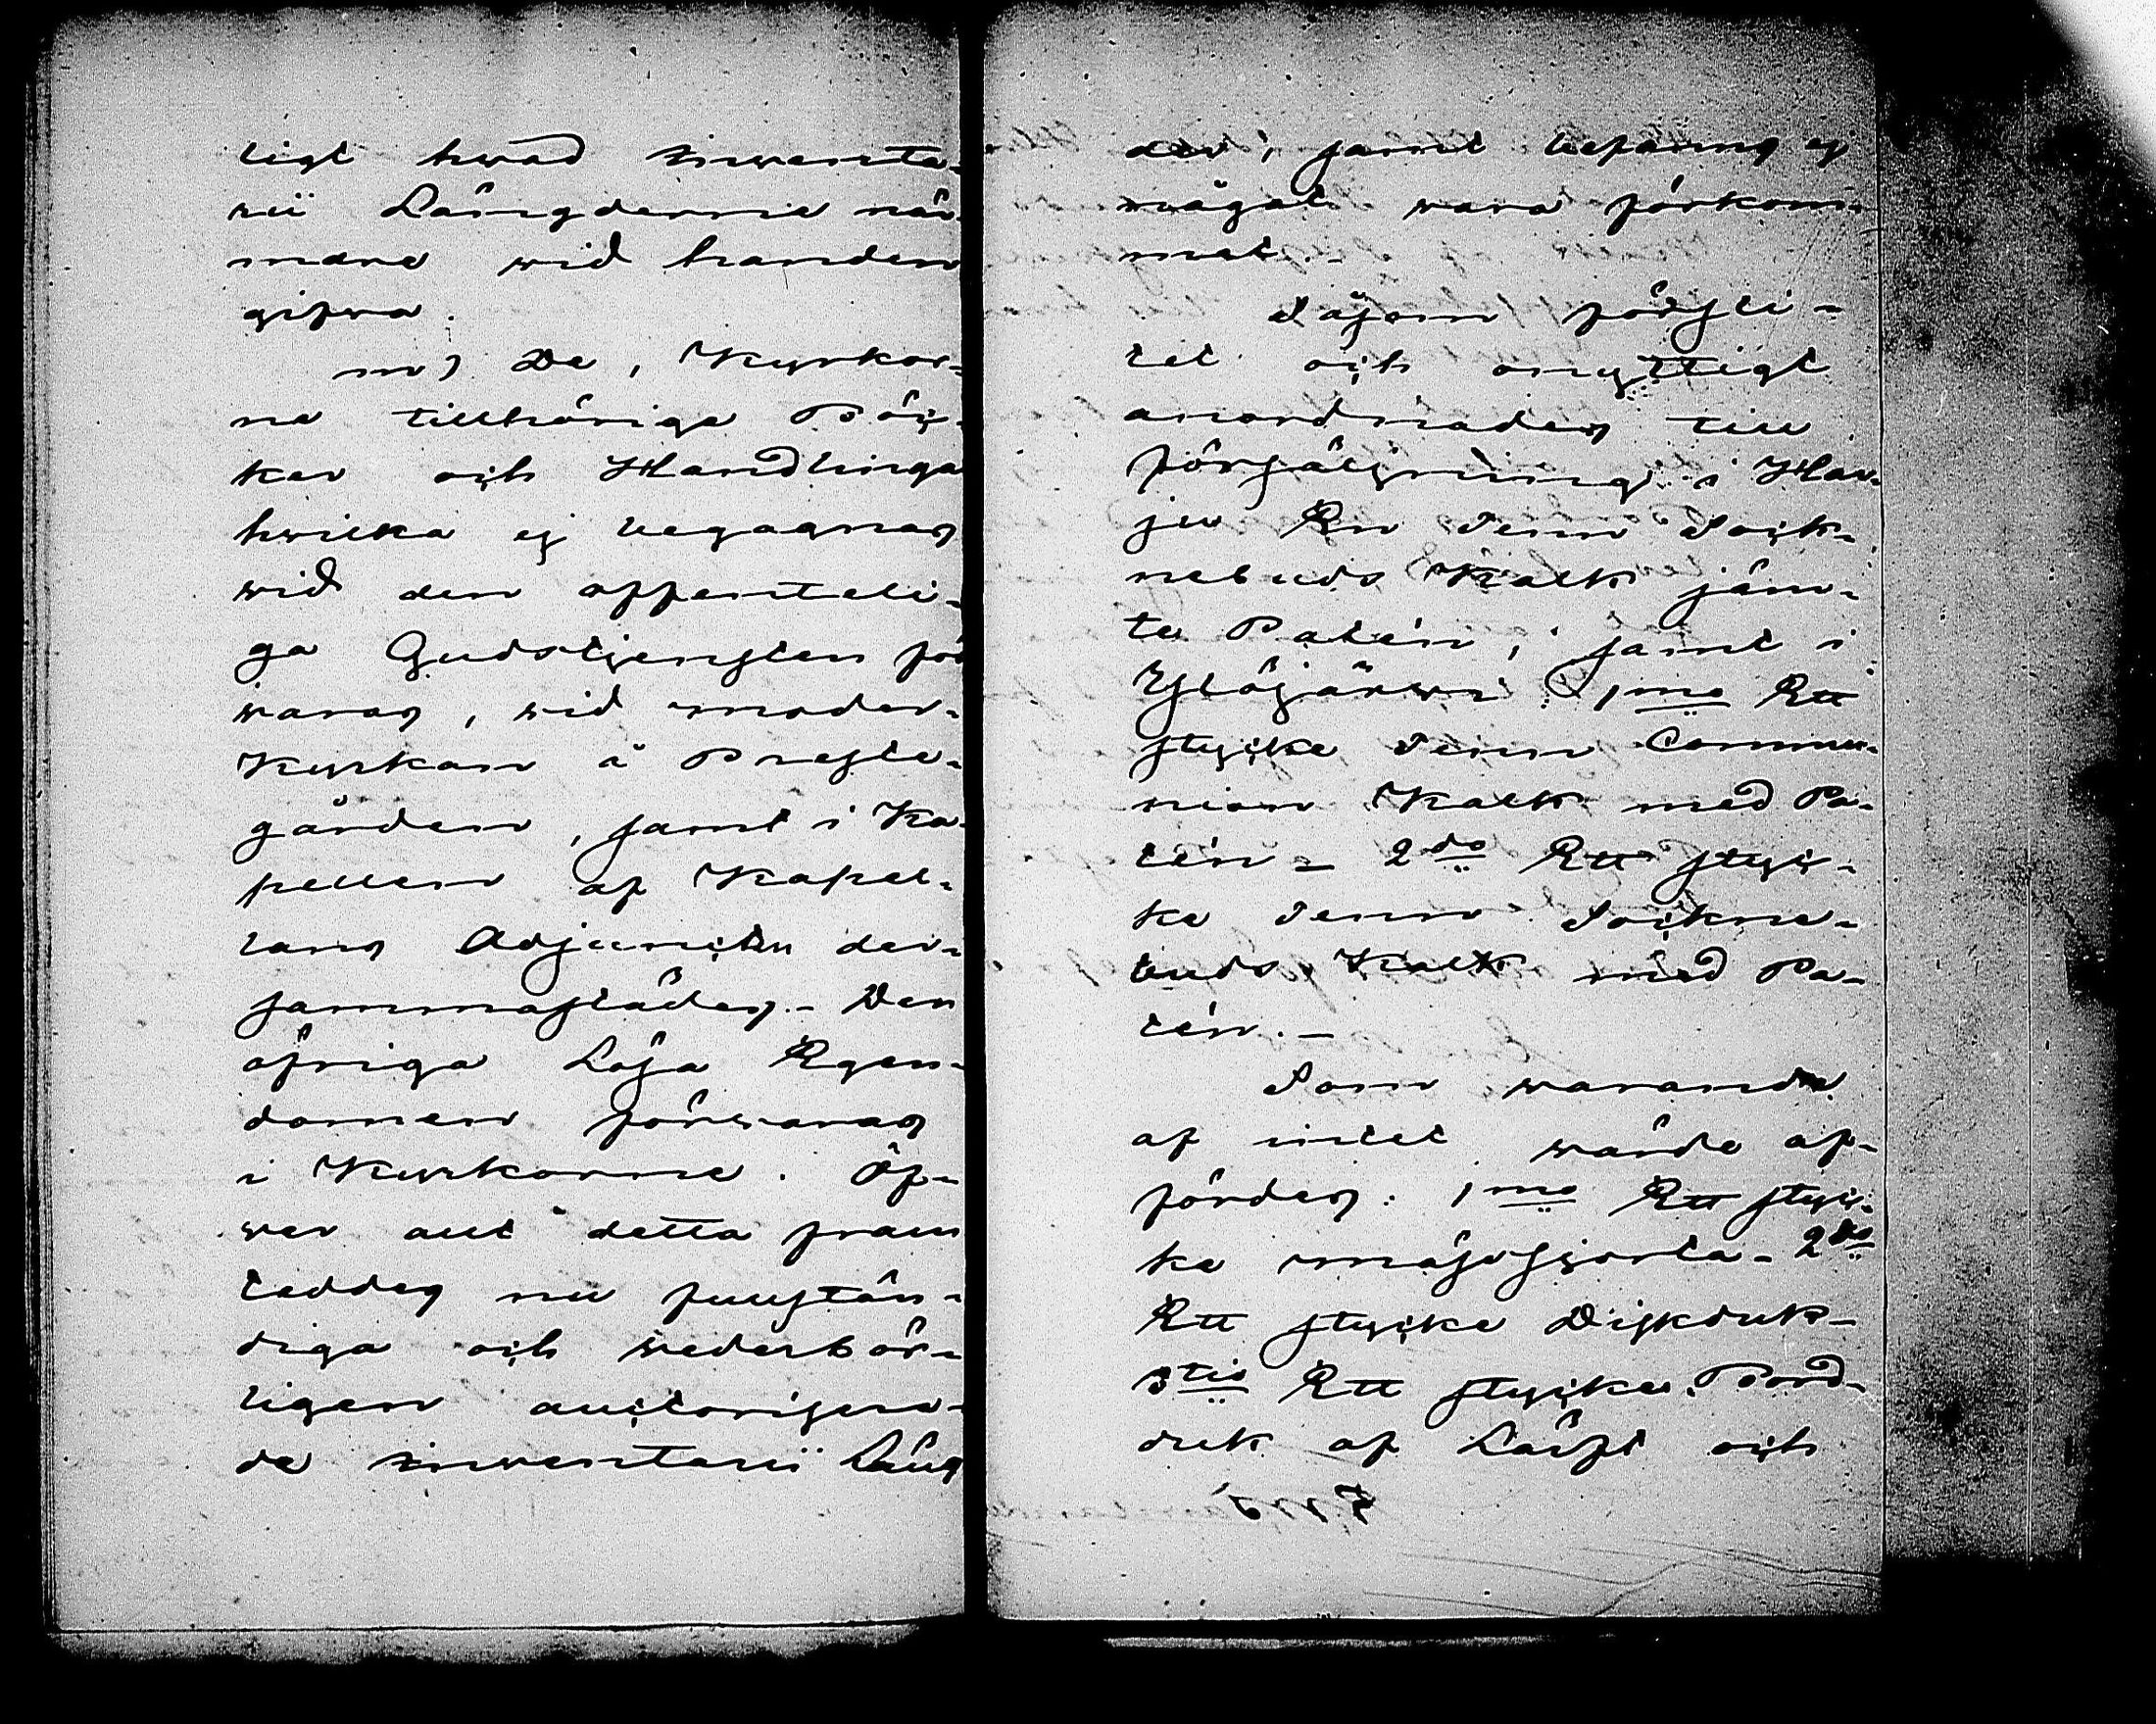 ligt hwad Inwenta-
rii Längderne när-
mare wid handen
gifwa.
m) De, Kyrkor-
ne tillhöriga Böc-
ker och Handlingar
hwilka ej begagnas
wid den offenteli-
ga Gudstjensten för
waras, wid moder-
Kyrkan å Preste-
gården, samt i Ka-
pellen af Kapel-
lans Adjuncten der-
sammastädes. - Den
öfriga Lösa Egen-
domen förwaras
i Kyrkorne. Öf-
wer allt detta fram
teddes nu fullstän-
diga och wederbör-
ligen auctoriserа-
de Inwentarii Läng
der, samt befanns ej
något wara förkom-
met.
Såsom försli-
tet och onyttigt
anordnades till
försäljning i Har-
ju En Tenn Sock-
nebuds Kalk jäm-
te Patén, samt i
Ylöjärwi 1mo Ett
stycke Tenn Commu-
nion Kalk med Pa-
tén - 2do Ett styc-
ke Tenn Sockne-
buds Kalk med Pa-
tén. -
Som warande
af intet wärde af-
fördes: 1mo Ett styc-
ke mässsjorta - 2do
Ett stycke Diskduk -
3tio Ett stycke Bord-
duk af Lärft och